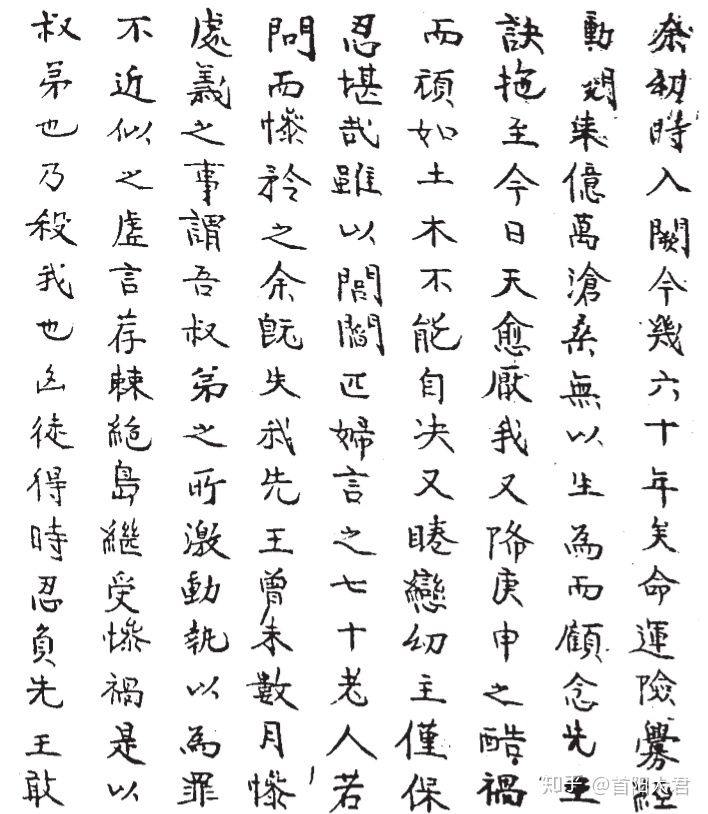 余幼時入闕今幾六十年矣命運險釁經
動來億萬滄桑無以生為而顧念先王
訣拖至今日天愈厭我又降庚申之酷禍
而頑如土木不能自决又睠戀幼主僅保
忍堪哉雖以閭閻匹婦言之七十老人若
問而慘矜之余旣失我先王曾未數月慘
處義之事謂吾叔弟之所激動執以為罪
不近似之虛言荐棘絕島繼受慘禍是以
叔弟也乃殺我也凶徒得時忍負先王敢
知乎 @首阳大君